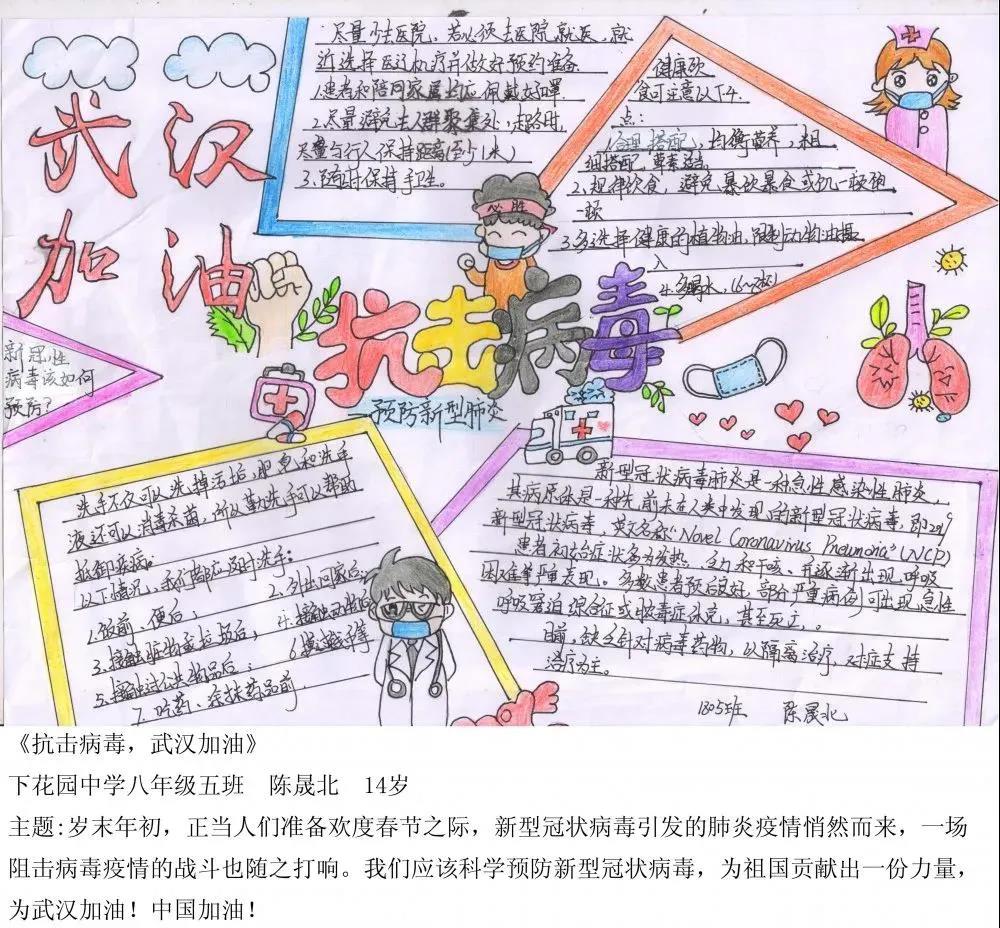 武汉
加油
尽量少去医院,若必须去医院就医,就
近选择医疗机疗并做好预约准备.
1.患者和陪同家属均应佩戴好口罩.
2.尽量避免去人群聚集处,走路时,
尽量与行人保持距离(至少1米)
3.随时保持手卫生。
健康饮
食可注意以下4.
点:
1合理搭配,均衡营养,粗
细搭配,荤素适当.
2.规律饮食,避免暴饮暴食或饥一顿饱
一顿
3.多选择健康的植物油,限制动物油摄
入
4.多喝水,(6~7杯)
必胜
抗击病毒
预防新型肺炎
新冠性
病毒该如何
预防?
洗手不仅可以洗掉污垢,肥皂和洗手
液还可以消毒杀菌,所以勤洗手可以帮助
抵御疾病。
以下情况,我们都应及时洗手:
1.饭前、便后; 2.外出回家后;
3.接触垃圾后; 4.接触动物后
5.接触过公共物品后; 6.擤鼻涕等
7.吃药、药品前
新型冠状病毒肺炎是一种急性感染性肺炎,
其病原体是一种先前未在人类中发现的新型冠状病毒,即2019
新型冠状病毒,英文名称"Novel Coronavirus Pneumonia"(NCP)
患者初始症状多为发热、乏力和干咳、并逐渐出现呼吸
困难等严重表现。多数患者预后良好,部分严重病例可出现急性
呼吸窘迫综合征或脓毒症休克,甚至死亡。
目前,缺乏针对病毒药物,以隔离治疗,对症支持
治疗为主。
1805班 陈晟北
《抗击病毒,武汉加油》
下花园中学八年级五班 陈晟北 14岁
主题:岁末年初,正当人们准备欢度春节之际,新型冠状病毒引发的肺炎疫情悄然而来,一场
阻击病毒疫情的战斗也随之打响。我们应该科学预防新型冠状病毒,为祖国贡献出一份力量,
为武汉加油!中国加油!